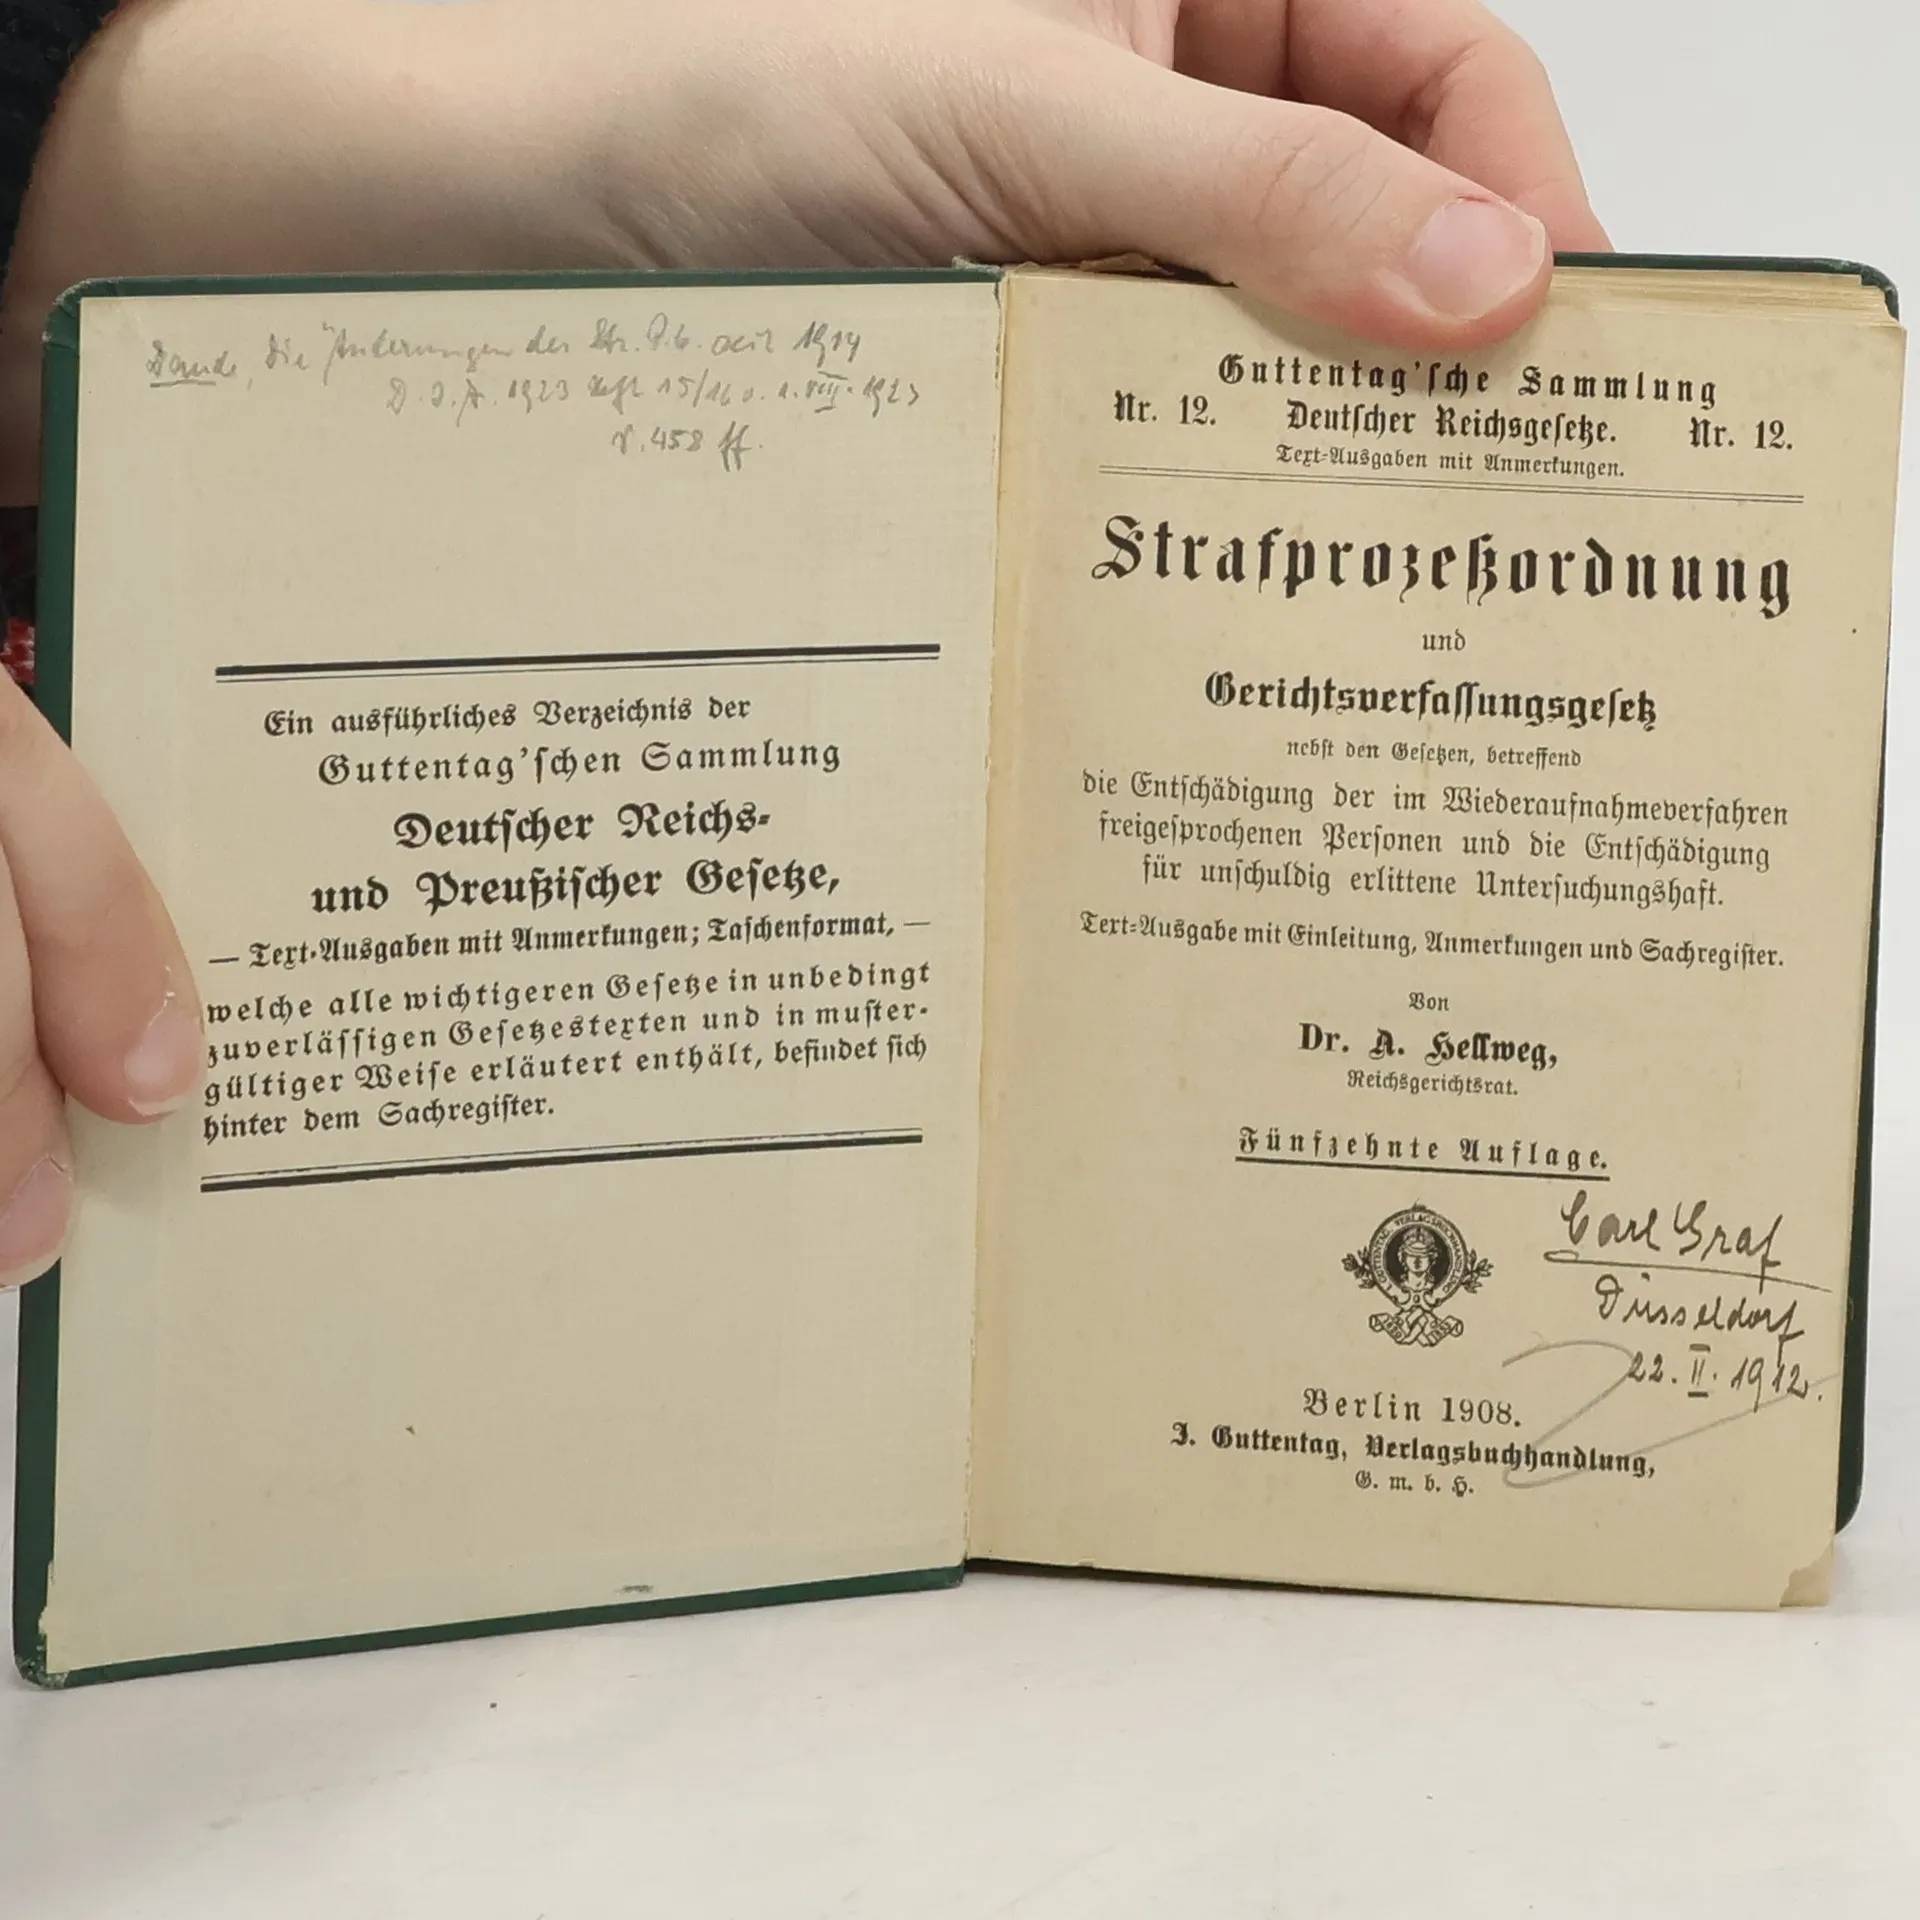 Die Änderungen der Str. P. O. seit 1914
D. J. Z. 1923 Heft 15/16 v. 1. VIII. 1923
S. 458 ff.
Ein ausführliches Verzeichnis der
Guttentag'ſchen Sammlung
Deutſcher Reichs-
und Preußiſcher Geſetze,
— Text-Ausgaben mit Anmerkungen; Taſchenformat, —
welche alle wichtigeren Geſetze in unbedingt
zuverläſſigen Geſetzestexten und in muſter-
gültiger Weiſe erläutert enthält, befindet ſich
hinter dem Sachregiſter.
Guttentag'ſche Sammlung
Nr. 12. Deutſcher Reichsgeſetze. Nr. 12.
Text-Ausgaben mit Anmerkungen.
Strafprozeßordnung
und
Gerichtsverfaſſungsgeſetz
nebſt den Geſetzen, betreffend
die Entſchädigung der im Wiederaufnahmeverfahren
freigeſprochenen Perſonen und die Entſchädigung
für unſchuldig erlittene Unterſuchungshaft.
Text-Ausgabe mit Einleitung, Anmerkungen und Sachregiſter.
Von
Dr. A. Hellweg,
Reichsgerichtsrat.
Fünfzehnte Auflage.
Carl Graf
Düsseldorf
22. II. 1912.
Berlin 1908.
J. Guttentag, Verlagsbuchhandlung,
G. m. b. H.